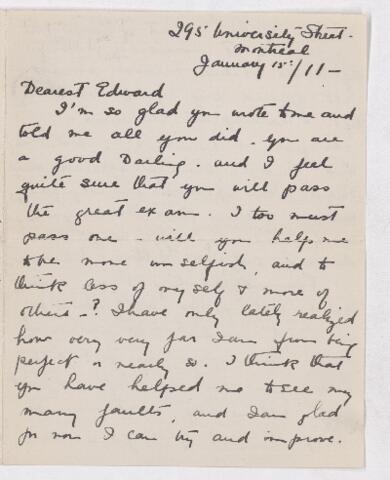 295 University Street.
Montreal
January 15:/11-
Dearest Edward
I'm so glad you wrote to me and
told me all you did. you are
a good Darling. and I feel
quite sure that you will pass
the great exam. I too must
pass one - will you help me
to be more unselfish, and to
think less of myself & more of
others-? I have only lately realized
how very very far I am from being
perfect or nearly so. I think that
you have helped me to see my
many faults, and I am glad
for now I can try and improve.